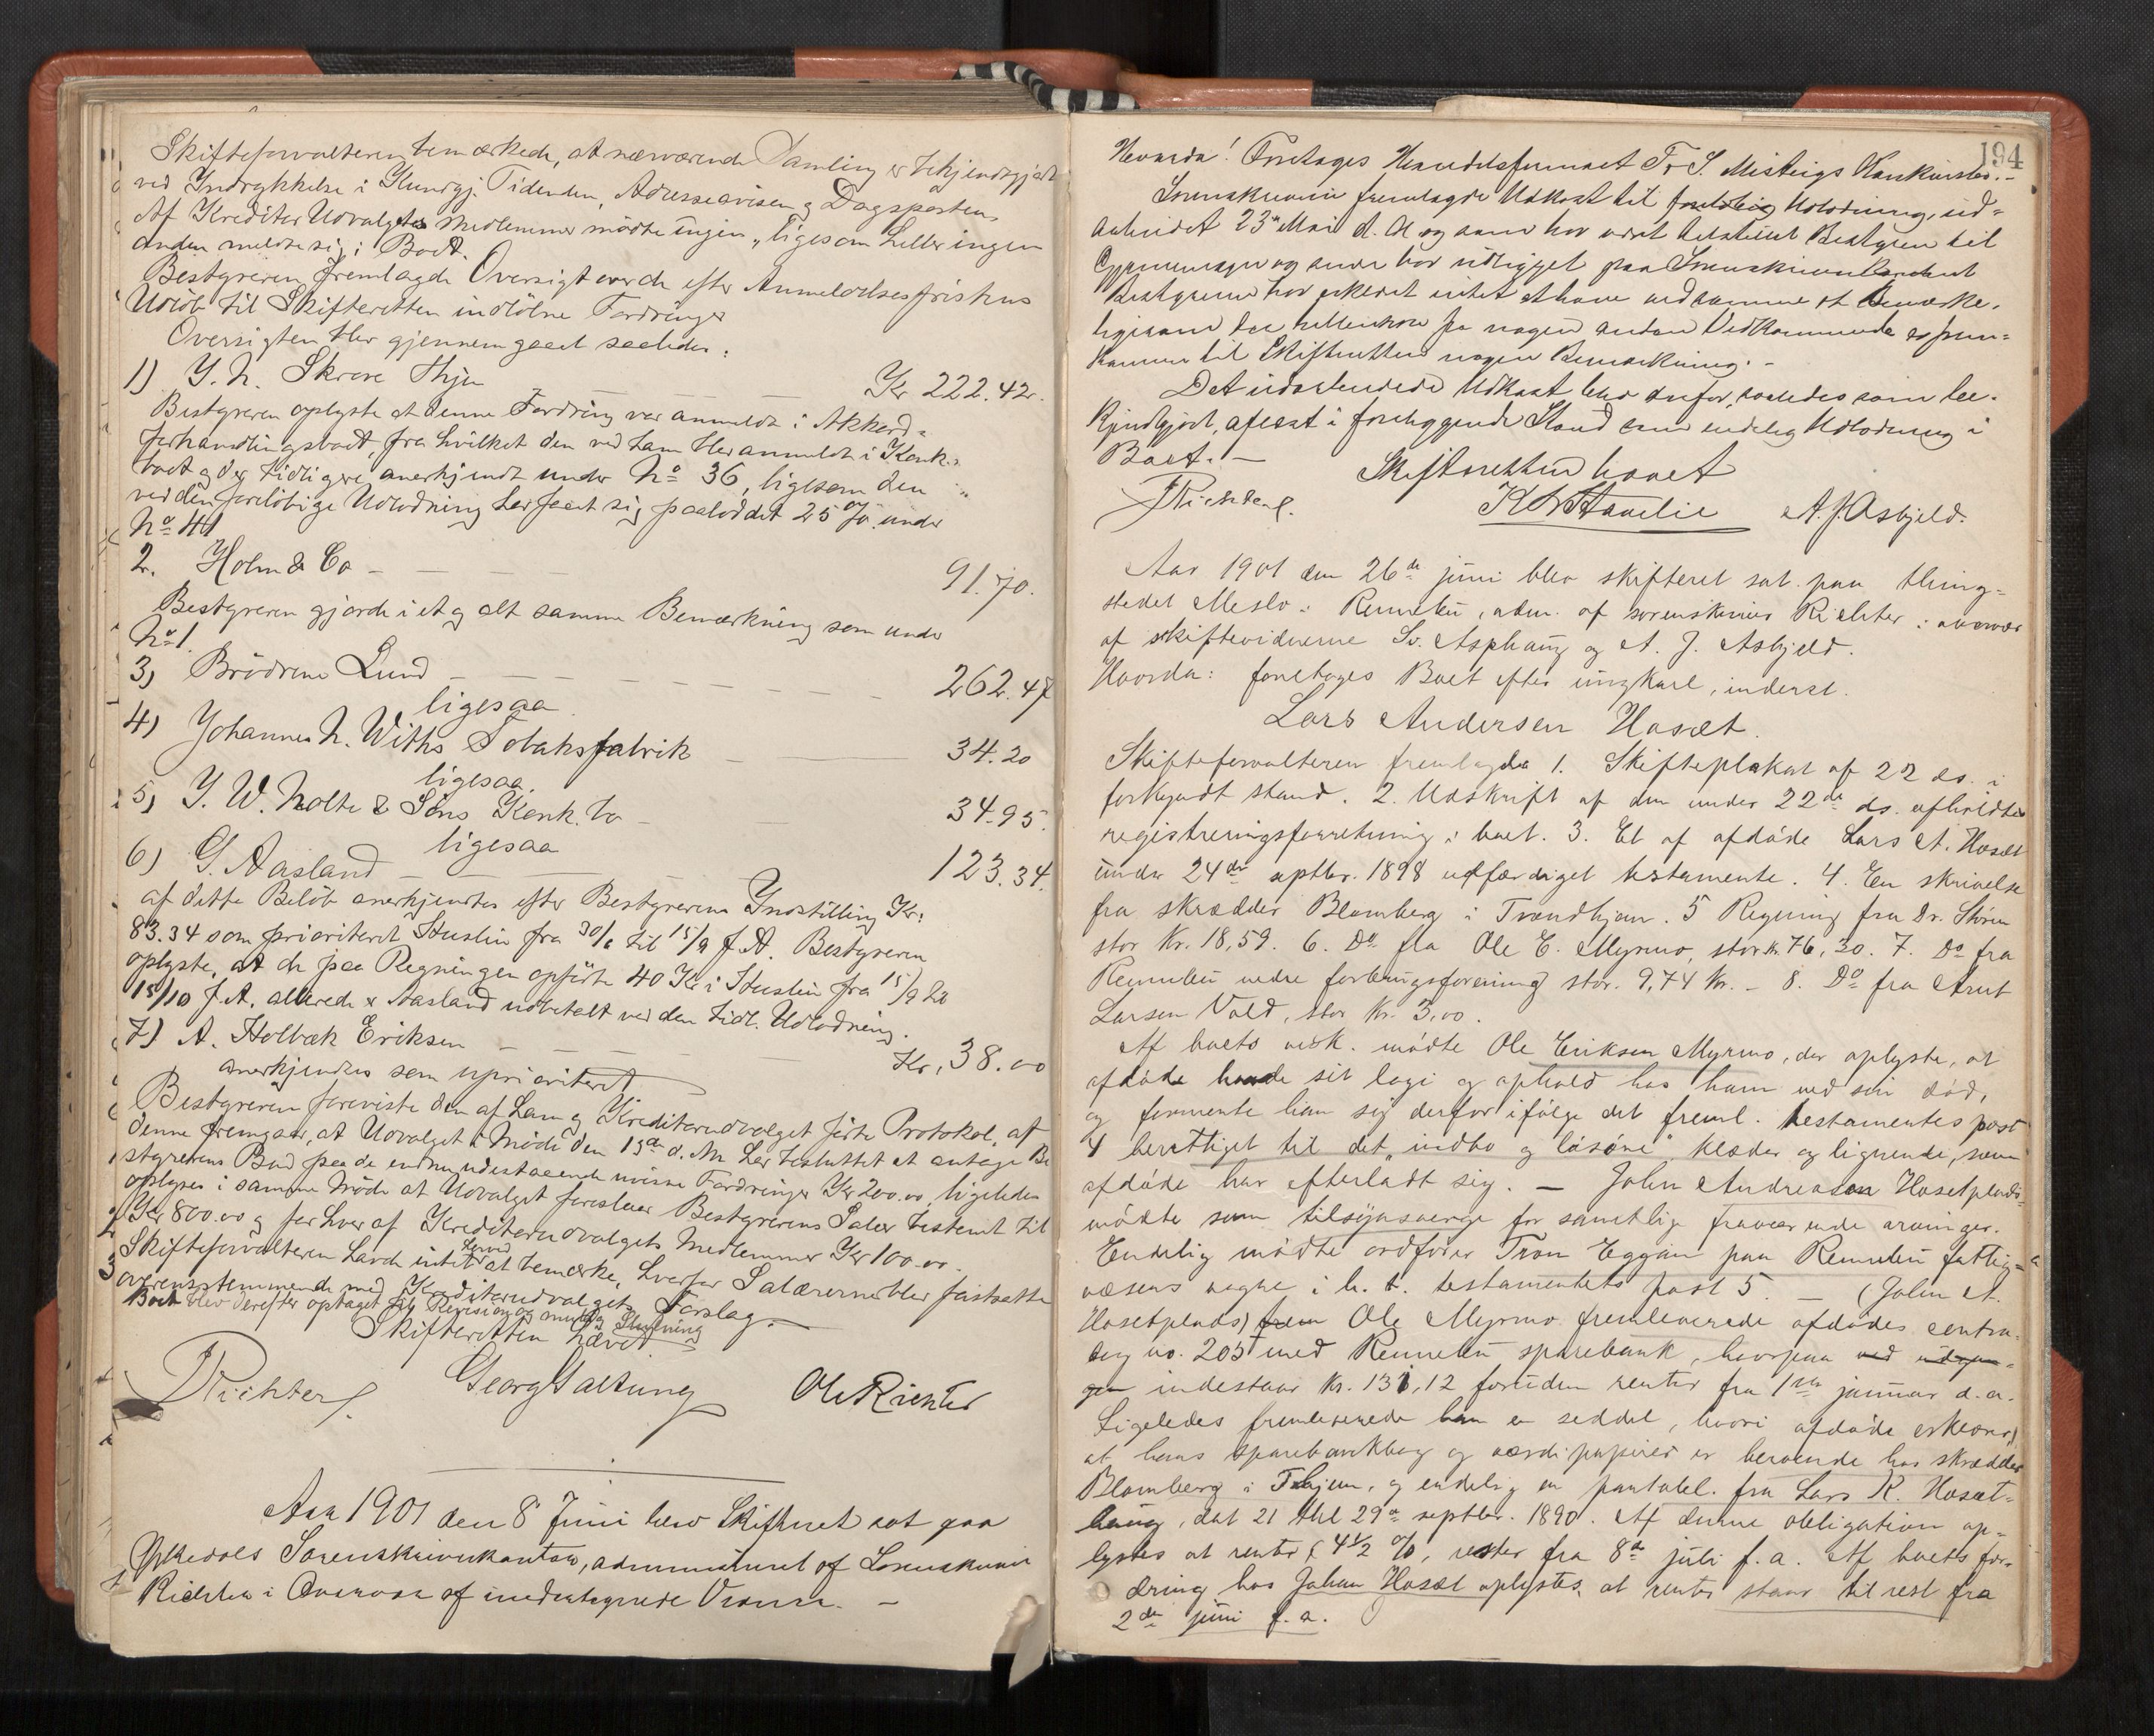 Skifteforvalteren bemærkede, at nærværende Samling er bekjendtgjort
ved Indrykkelse i Kundgj. Tidenden, Adresseavisen og Dagsposten.
Af Kreditor Udvalgets Medlemmer mødte ingen, ligesom heller ingen
anden meldte sig i Boet.
Bestyreren fremlagde Oversigt over de efter Anmeldelsesfristens
Udløb til Skifteretten indløbne Fordringer
Oversigten blev gjennemgaaet saaledes:
1) J. N. Skrove Thjem Kr 222.42.
Bestyreren oplyste at denne Fordring var anmeldt i Akkord-
forhandlingsboet, fra hvilket den ved ham blev anmeldt i Konk.
boet og der tidligere anerkjendt under No 36, ligesom den
ved den foreløbige Udlodning har faaet sig paaloddet 25 % under
No 41
2. Holm & Co 91.70.
Bestyreren gjorde i et og alt samme Bemærkning som under
No 1.
3) Brödrene Lund 262.47
ligesaa
4) Johannes N. Withs Tobaksfabrik 34.20
ligesaa
5) J. W. Nolte & Söns Konk. bo 34.95.
ligesaa
6) G. Aasland 123.34.
af dette Beløb anerkjendtes efter Bestyrerens Indstilling Kr:
83.34 som prioriteret Husleie fra 30/6 til 15/9 f. A. Bestyreren
oplyste, at de paa Regningen opførte 40 Kr i Husleie fra 15/9 til
15/10 f. A. allerede er Aasland udbetalt ved den tidl. Udlodning.
7) A. Holbæk Eriksen Kr. 38.00
anerkjendtes som uprioriteret
Bestyreren foreviste den af ham og Kreditorudvalget førte Protokol, af
denne fremgaar, at Udvalget i Møde den 15de d. M. har besluttet at antage Be
styrerens Bud paa de endnu udestaaende uvisse Fordringer Kr 200.00, ligeledes
oplyses i samme Møde at Udvalget foreslaar Bestyrerens Salær bestemt til
Kr 800.00 og for hver af Kreditorudvalgets Medlemmer Kr 100.00.
Skifteforvalteren havde intet herved at bemærke, hvorfor Salærerne blev fastsatte
overensstemmende med Kreditorudvalgets Forslag.
Boet blev derefter optaget til Revision og mulig Slutning
Skifteretten hævet
Richter Georg Galtung Ole Richter
Aar 1901 den 8 Juni blev Skifteret sat paa
Orkedals Sorenskriverkontor, administreret af Sorenskriver
Richter i Overvær af undertegnede Vidner. –
194
Hvorda! Foretages Handelsfirmaet Fr. S. Konkursbo. –
Sorenskriveren fremlagde Udkast til foreløbig Udlodning, ud-
arbeidet 23de Mai d. A. og som har været tilstillet Bestyreren til
Gjennemsyn og siden har udligget paa Sorenskriverkontoret
Bestyreren har erklæret intet at have ved samme at bemærke,
ligesom der hellerikke fra nogen anden Vedkommende er frem-
kommen til Skifteretten nogen Bemærkning. –
Det udarbeidede Udkast blev derfor, saaledes som be-
kjendtgjort, aflæst i foreliggende Stand som endelig Udlodning i
Boet. – Skifteretten hævet
Richter A. J. Asbjeld.
Aar 1901 den 26de juni blev skifteret sat paa thing-
stedet Meslo i Rennebu, adm. af sorenskriver Richter i overvær
af skiftevidnerne Sv. Asphaug og A. J. Asbjeld.
Hvorda: foretoges Boet efter ungkarl, inderst.
Lars Andersen Hosæt.
Skifteforvalteren fremlagde 1. Skifteplakat af 22 ds. i
forkyndt stand. 2. Udskrift af den under 22de ds. afholdte
registreringsforretning i boet. 3. Et af afdøde Lars A. Hosæt
under 24de septbr. 1898 udfærdiget testamente. 4. En skrivelse
fra skrædder Blomberg i Trondhjem. 5 Regning fra Dr. Støren
stor Kr. 18,59. 6. Do fra Ole E. Myrmo, stor kr. 76,30. 7. Do fra
Rennebu nedre forbrugsforening stor. 9,74 kr. – 8. Do fra Arnt
Larsen Vold, stor kr. 3,00.
Af boets vedk. mødte Ole Eriksen Myrmo, der oplyste, at
afdøde havde sit logi og ophold hos ham ved sin død,
og formente han sig derfor ifølge det freml. testamentes post
4 berettiget til det "indbo og løsøre", klæder og lignende, som
afdøde har efterladt sig. – John Andreasen Hosetplads
mødte som tilsynsverge for samtlige fraværende arvinger.
Endelig mødte ordfører Tron Eggan paa Rennebu fattig-
væsens vegne i h. t. testamentets post 5. – (John A.
Hosetplads) Ole Myrmo fremleverede afdødes contra-
bog no. 205 med Rennebu sparebank, hvorpaa
indestaar kr. 131,12 foruden renter fra 1ste januar d. a.
Ligeledes fremleverede han en seddel, hvori afdøde erklærer,
at hans sparebankbog og værdipapirer er beroende hos skrædder
Blomberg i Thjem, og endelig en pantobl. fra Lars R. Hosæt-
haug, dat 21 thl 29de septbr. 1890. Af denne obligation op-
lystes at renter (4 1/2 %, rester fra 8de juli f. a. Af boets for-
dring hos Johan Hosæt oplystes, at renter staar til rest fra
2den juni f. a.